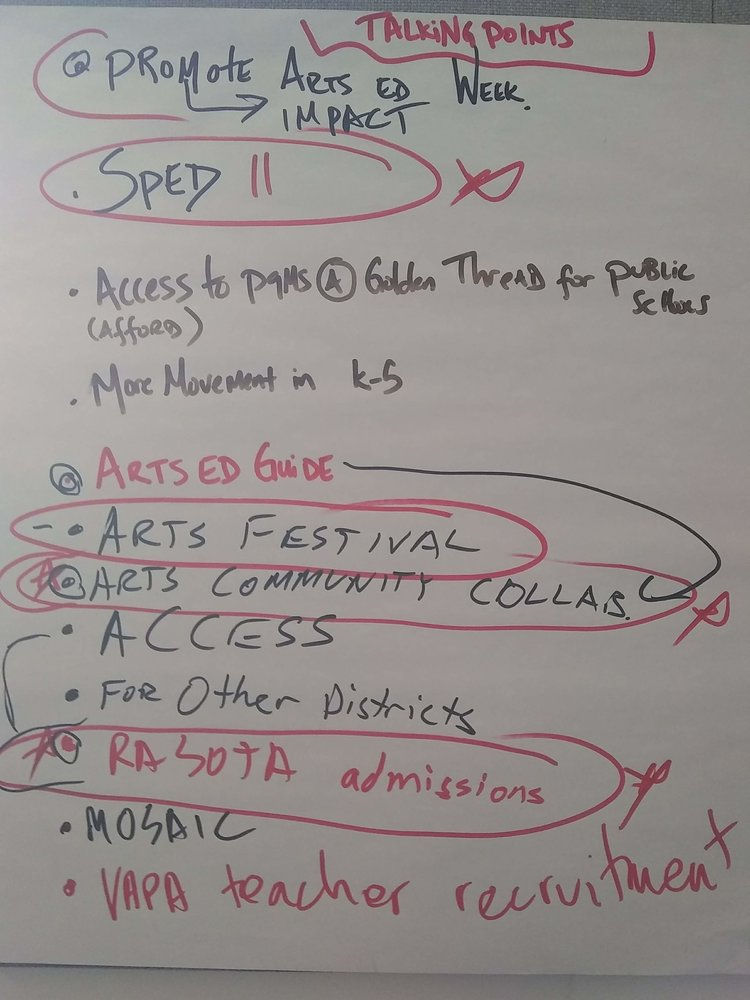 TALKING POINTS
PROMOTE ARTS ED WEEK.
IMPACT
. SPED II
• Access to pgMS @ Golden Thread for public
(Afford)
. More Movement in K-5
ARTS ED GUIDE
- • ARTS FESTIVAL
ARTS COMMUNITY COLLAB.
• ACCESS
• FOR Other Districts
RASOTA admissions
• MOSAIC
• VAPA teacher recruitment